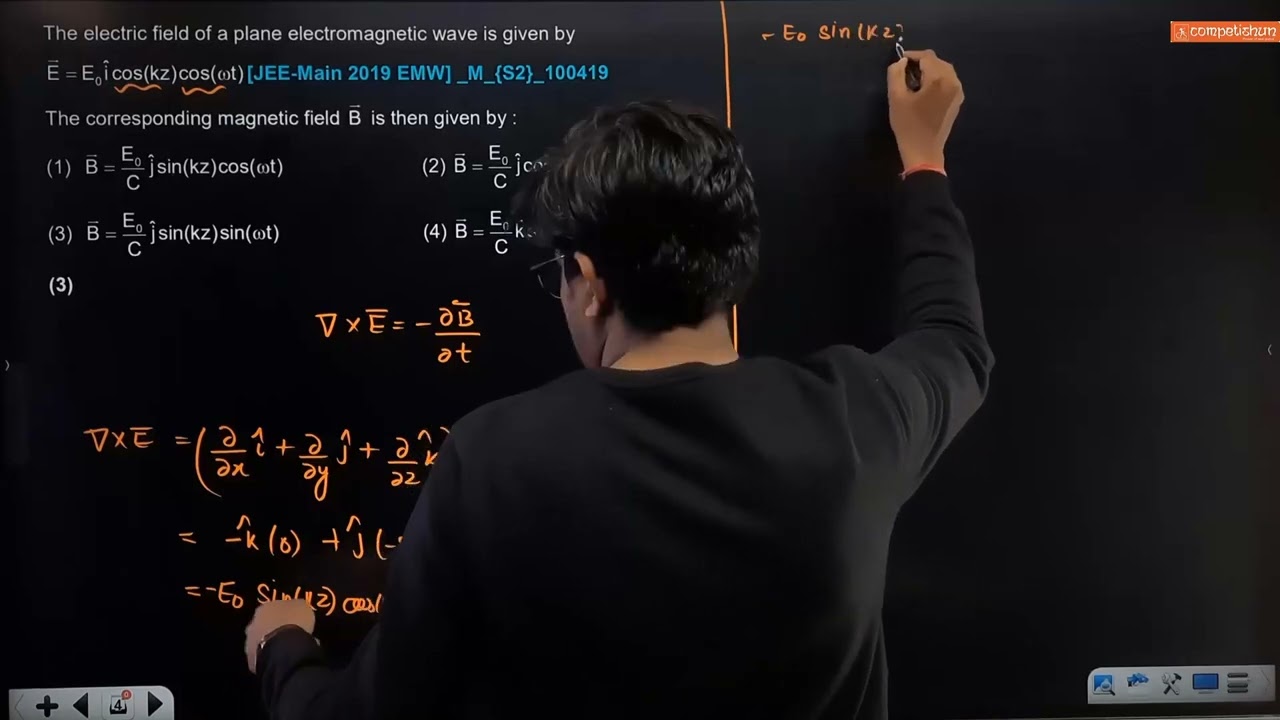 The electric field of a plane electromagnetic wave is given by
E⃗ = E₀ î cos(kz)cos(ωt) [JEE-Main 2019 EMW] _M_{S2}_100419
The corresponding magnetic field B⃗ is then given by :
(1) B⃗ = E₀/C ĵ sin(kz)cos(ωt)
(2) B⃗ = E₀/C ĵ
(3) B⃗ = E₀/C ĵ sin(kz)sin(ωt)
(4) B⃗ = E₀/C k̂
(3)
∇ × E̅ = - ∂B̅/∂t
∇×E̅ = (∂/∂x î + ∂/∂y ĵ + ∂/∂z k̂)
= -k̂ (0) + ĵ (-
= -E₀ sin(kz) cos(
- E₀ sin(kz)
competishun
4
0